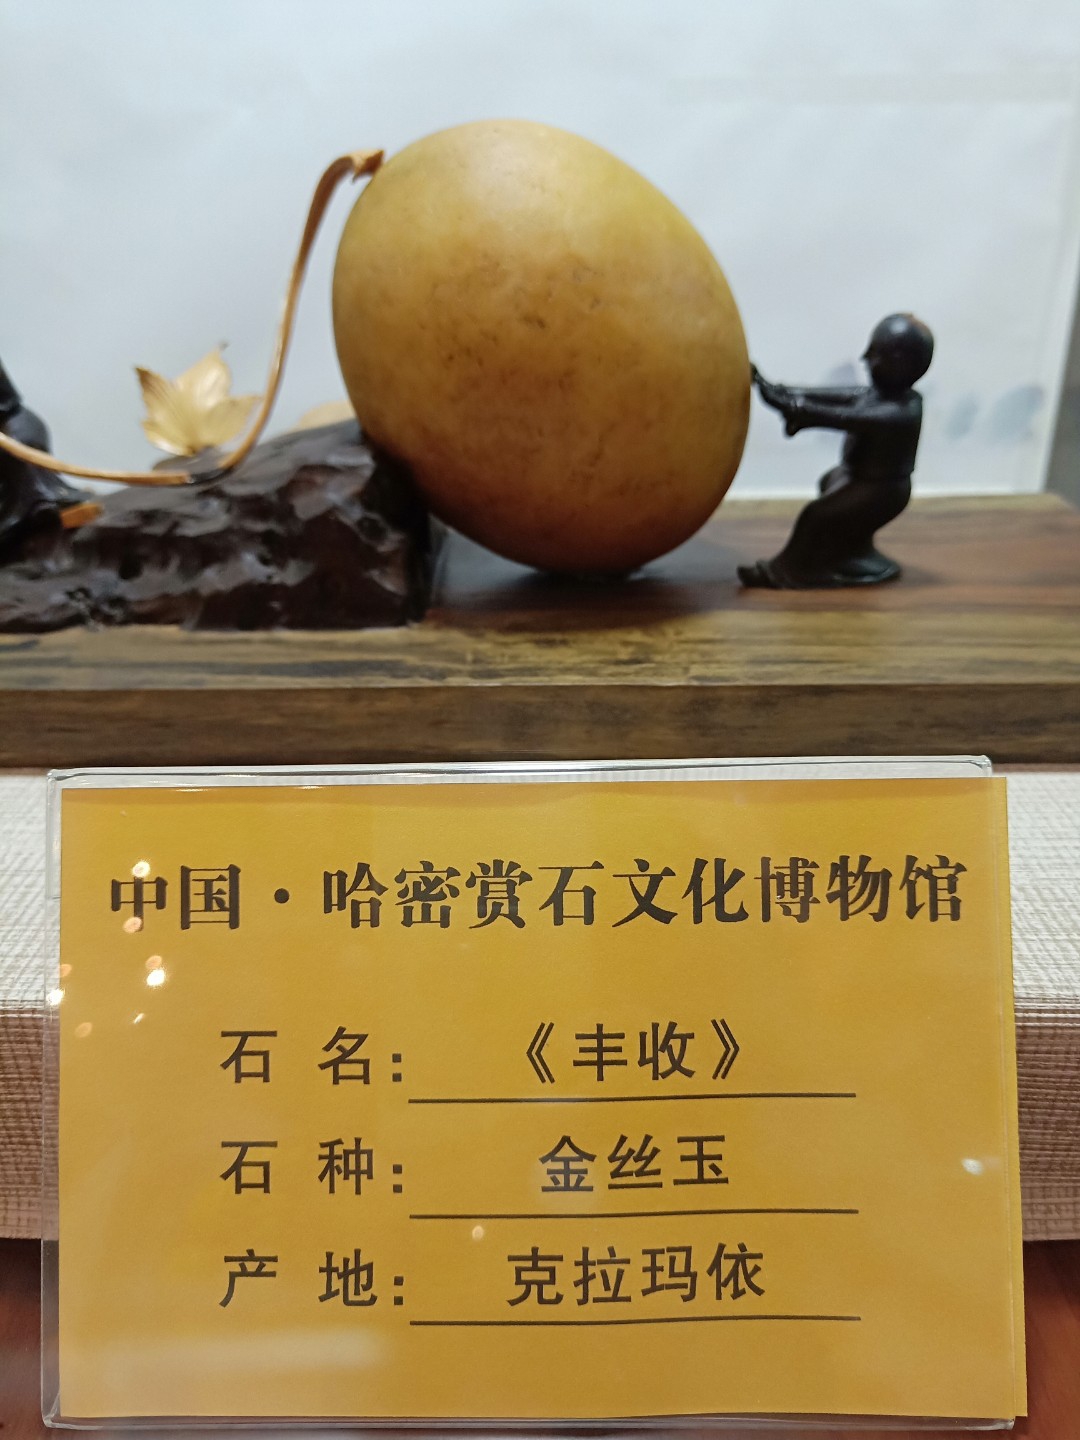 中国·哈密赏石文化博物馆
石 名：《丰收》
石 种：金丝玉
产 地：克拉玛依